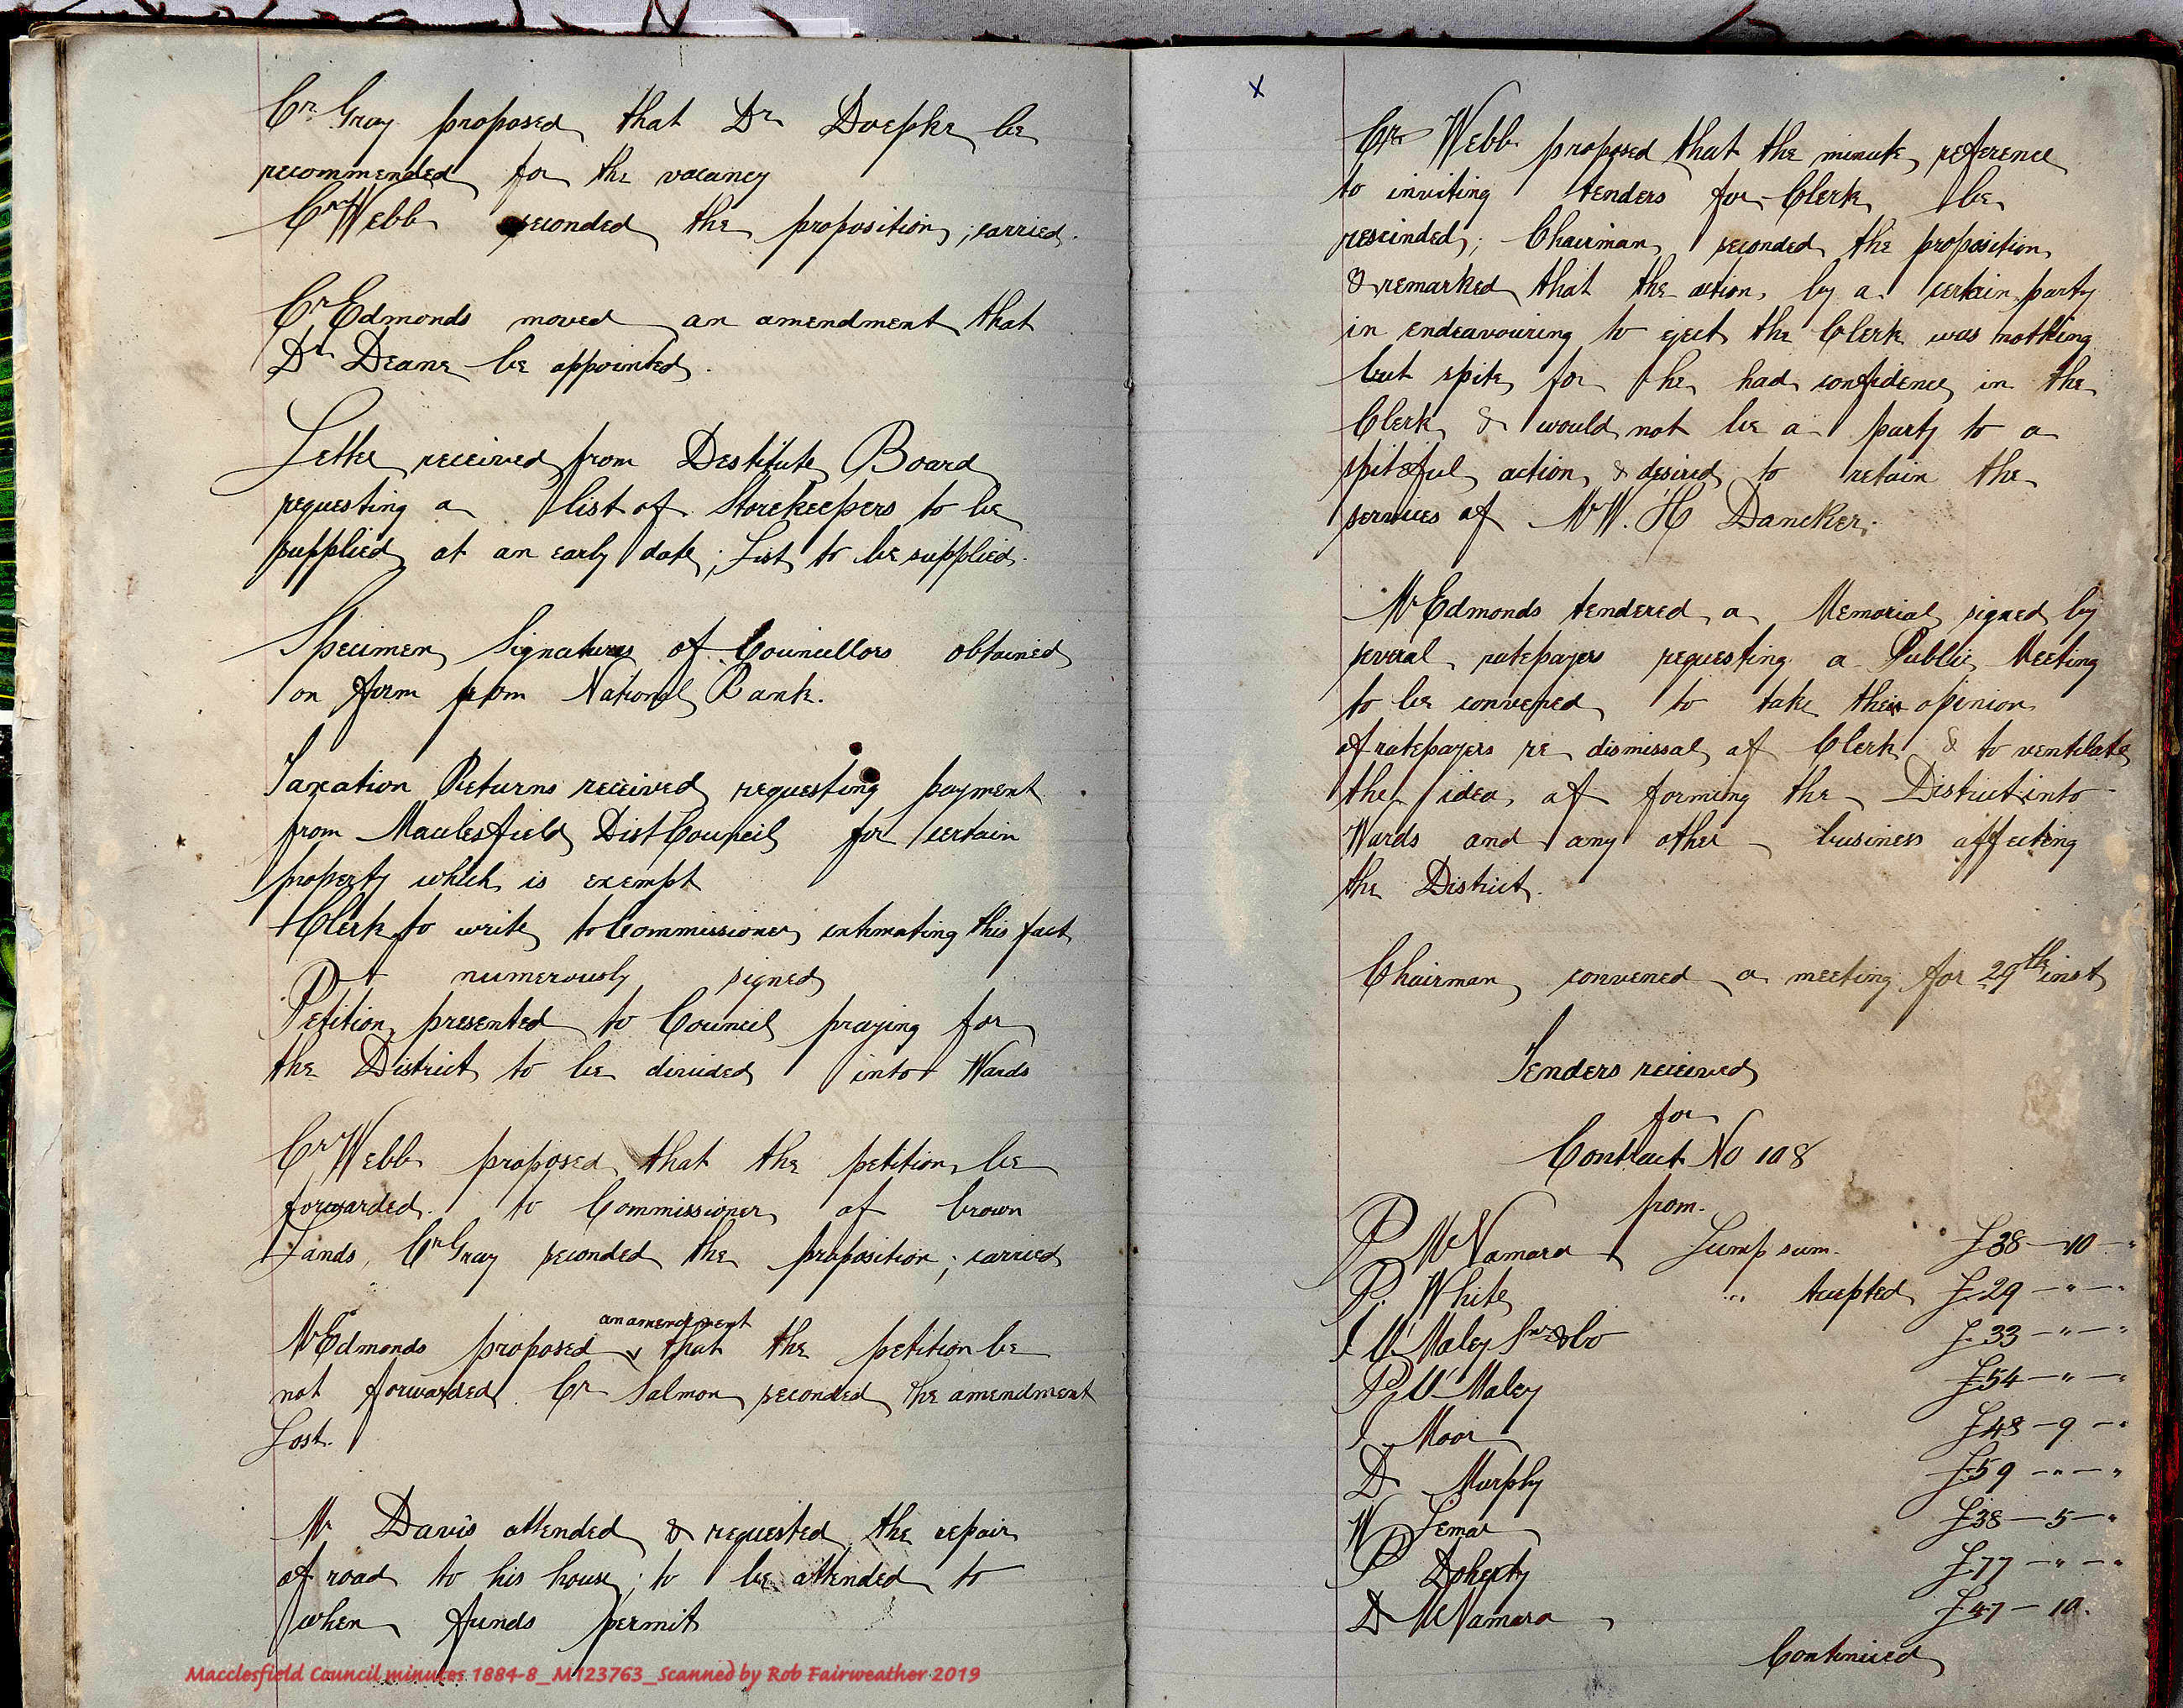 Cr Gray proposed that Dr Doepke be
recommended for the vacancy
Cr Webb seconded the proposition; carried.
Cr Edmonds moved an amendment that
Dr Deane be appointed.
Letter received from Destitute Board
requesting a list of Storekeepers to be
supplied at an early date; List to be supplied.
Specimen Signatures of Councillors obtained
on form from National Bank.
Taxation Returns received requesting payment
from Macclesfield Dist Council for certain
property which is exempt
Clerk to write to Commissioner intimating this fact
numerously signed
Petition presented to Council praying for
the District to be divided into Wards
Cr Webb proposed that the petition be
forwarded to Commissioner of Crown
Lands, Cr Gray seconded the proposition; carried
an amendment
Mr Edmonds proposed that the petition be
not forwarded. Cr Salmon seconded the amendment
Lost.
Mr Davis attended & requested the repair
of road to his house; to be attended to
when funds permit
Macclesfield Council minutes 1884-8_M123763_Scanned by Rob Fairweather 2019
x
Cr Webb proposed that the minute reference
to inviting tenders for Clerk be
rescinded; Chairman seconded the proposition
& remarked that the action by a certain party
in endeavouring to eject the Clerk was nothing
but spite for he had confidence in the
Clerk & would not be a party to a
spiteful action, & desired to retain the
services of Mr W. H Dancker.
Mr Edmonds tendered a Memorial signed by
several ratepayers requesting a Public Meeting
to be convened to take their opinion
of ratepayers re dismissal of Clerk & to ventilate
the idea of forming the District into
Wards and any other business affecting
the District.
Chairman convened a meeting for 29th inst
Tenders received
for
Contract No 108
from.
P McNamara Lump sum. £38 — 10 — "
P. White " Accepted £29 — " — "
J O'Maley Snr & Co £33 — " — "
P O'Maley £54 — " — "
J Moor £48 — 9 — "
D Murphy £59 — " — "
W Lemar £38 — 5 — "
P Doherty £77 — " — "
D McNamara £47 — 10.
Continued